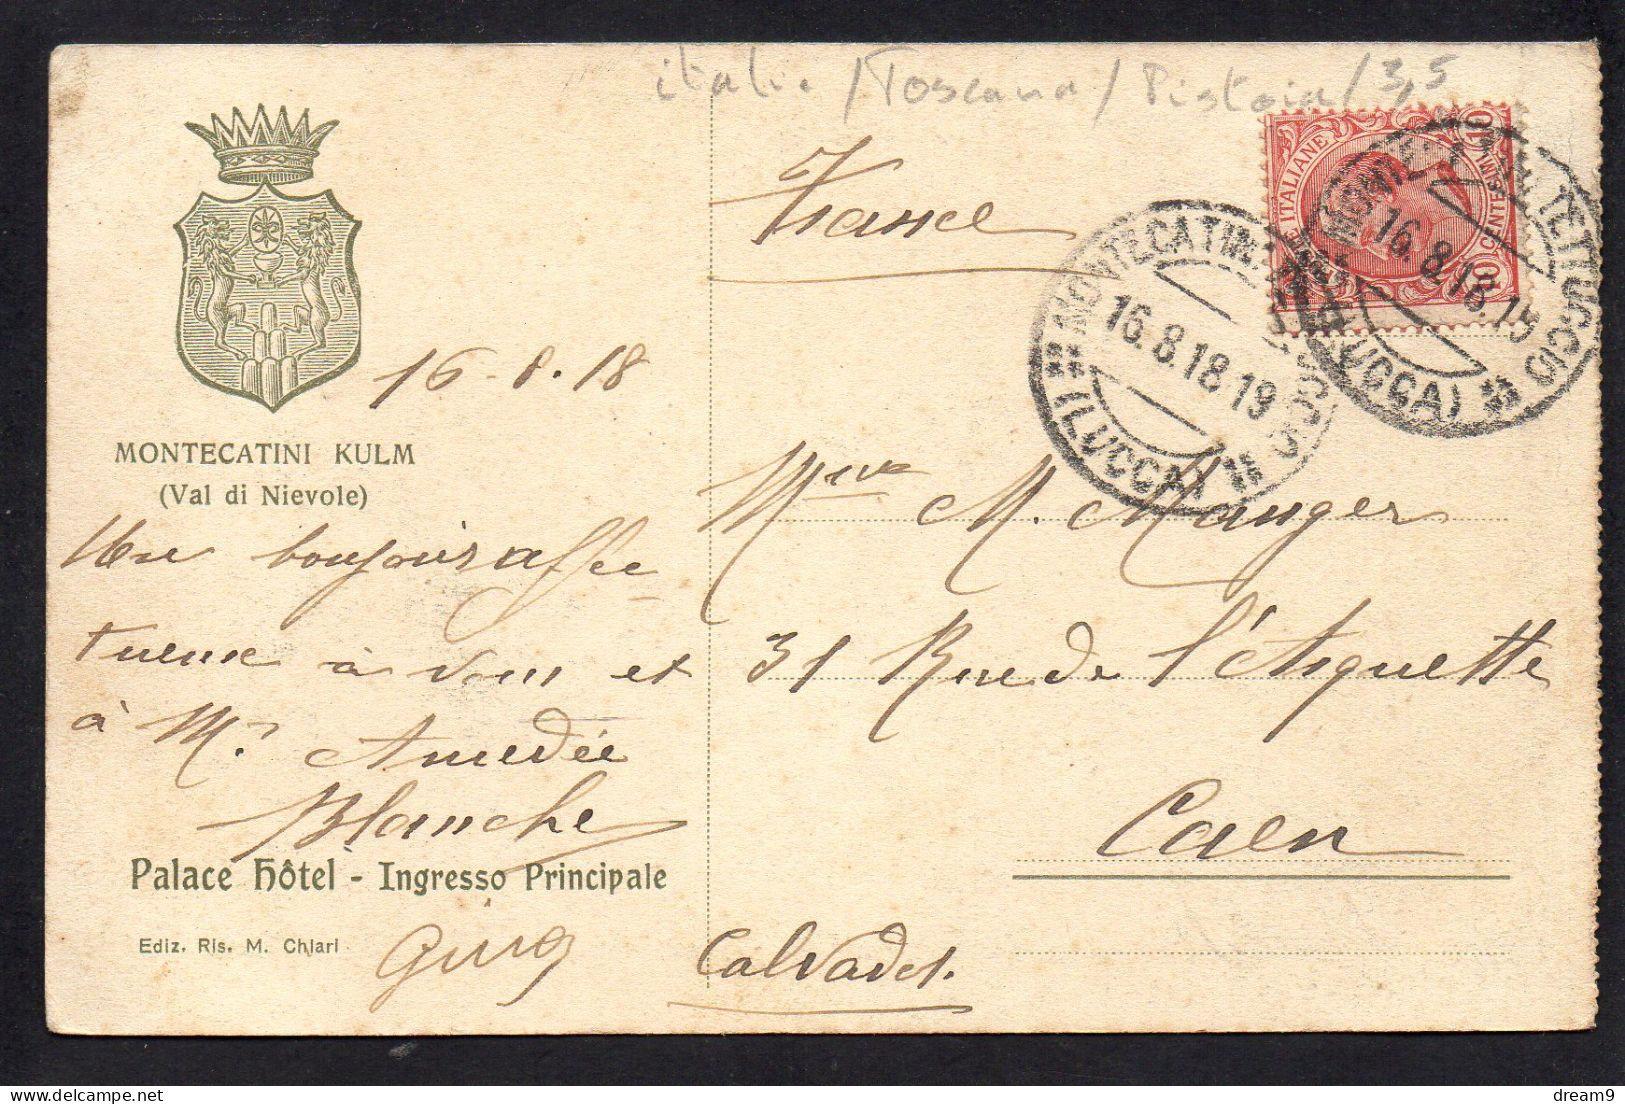 itali. / Toscana / Pistoia / 3,5
France
POSTE ITALIANE
CENTESIMI 10
MONTECATINI TETTUCCIO (LUCCA)
16.8.18.19
MONTECATINI TETTUCCIO (LUCCA)
16.8.18.19
16-8.18
MONTECATINI KULM
(Val di Nievole)
Un bonjour affec
tueux à vous et
à Mr Amedée
Blanche
Palace Hôtel - Ingresso Principale
Ediz. Ris. M. Chiari
Mme M. Manger
31 Rue de l'Arquette
Caen
Calvados.